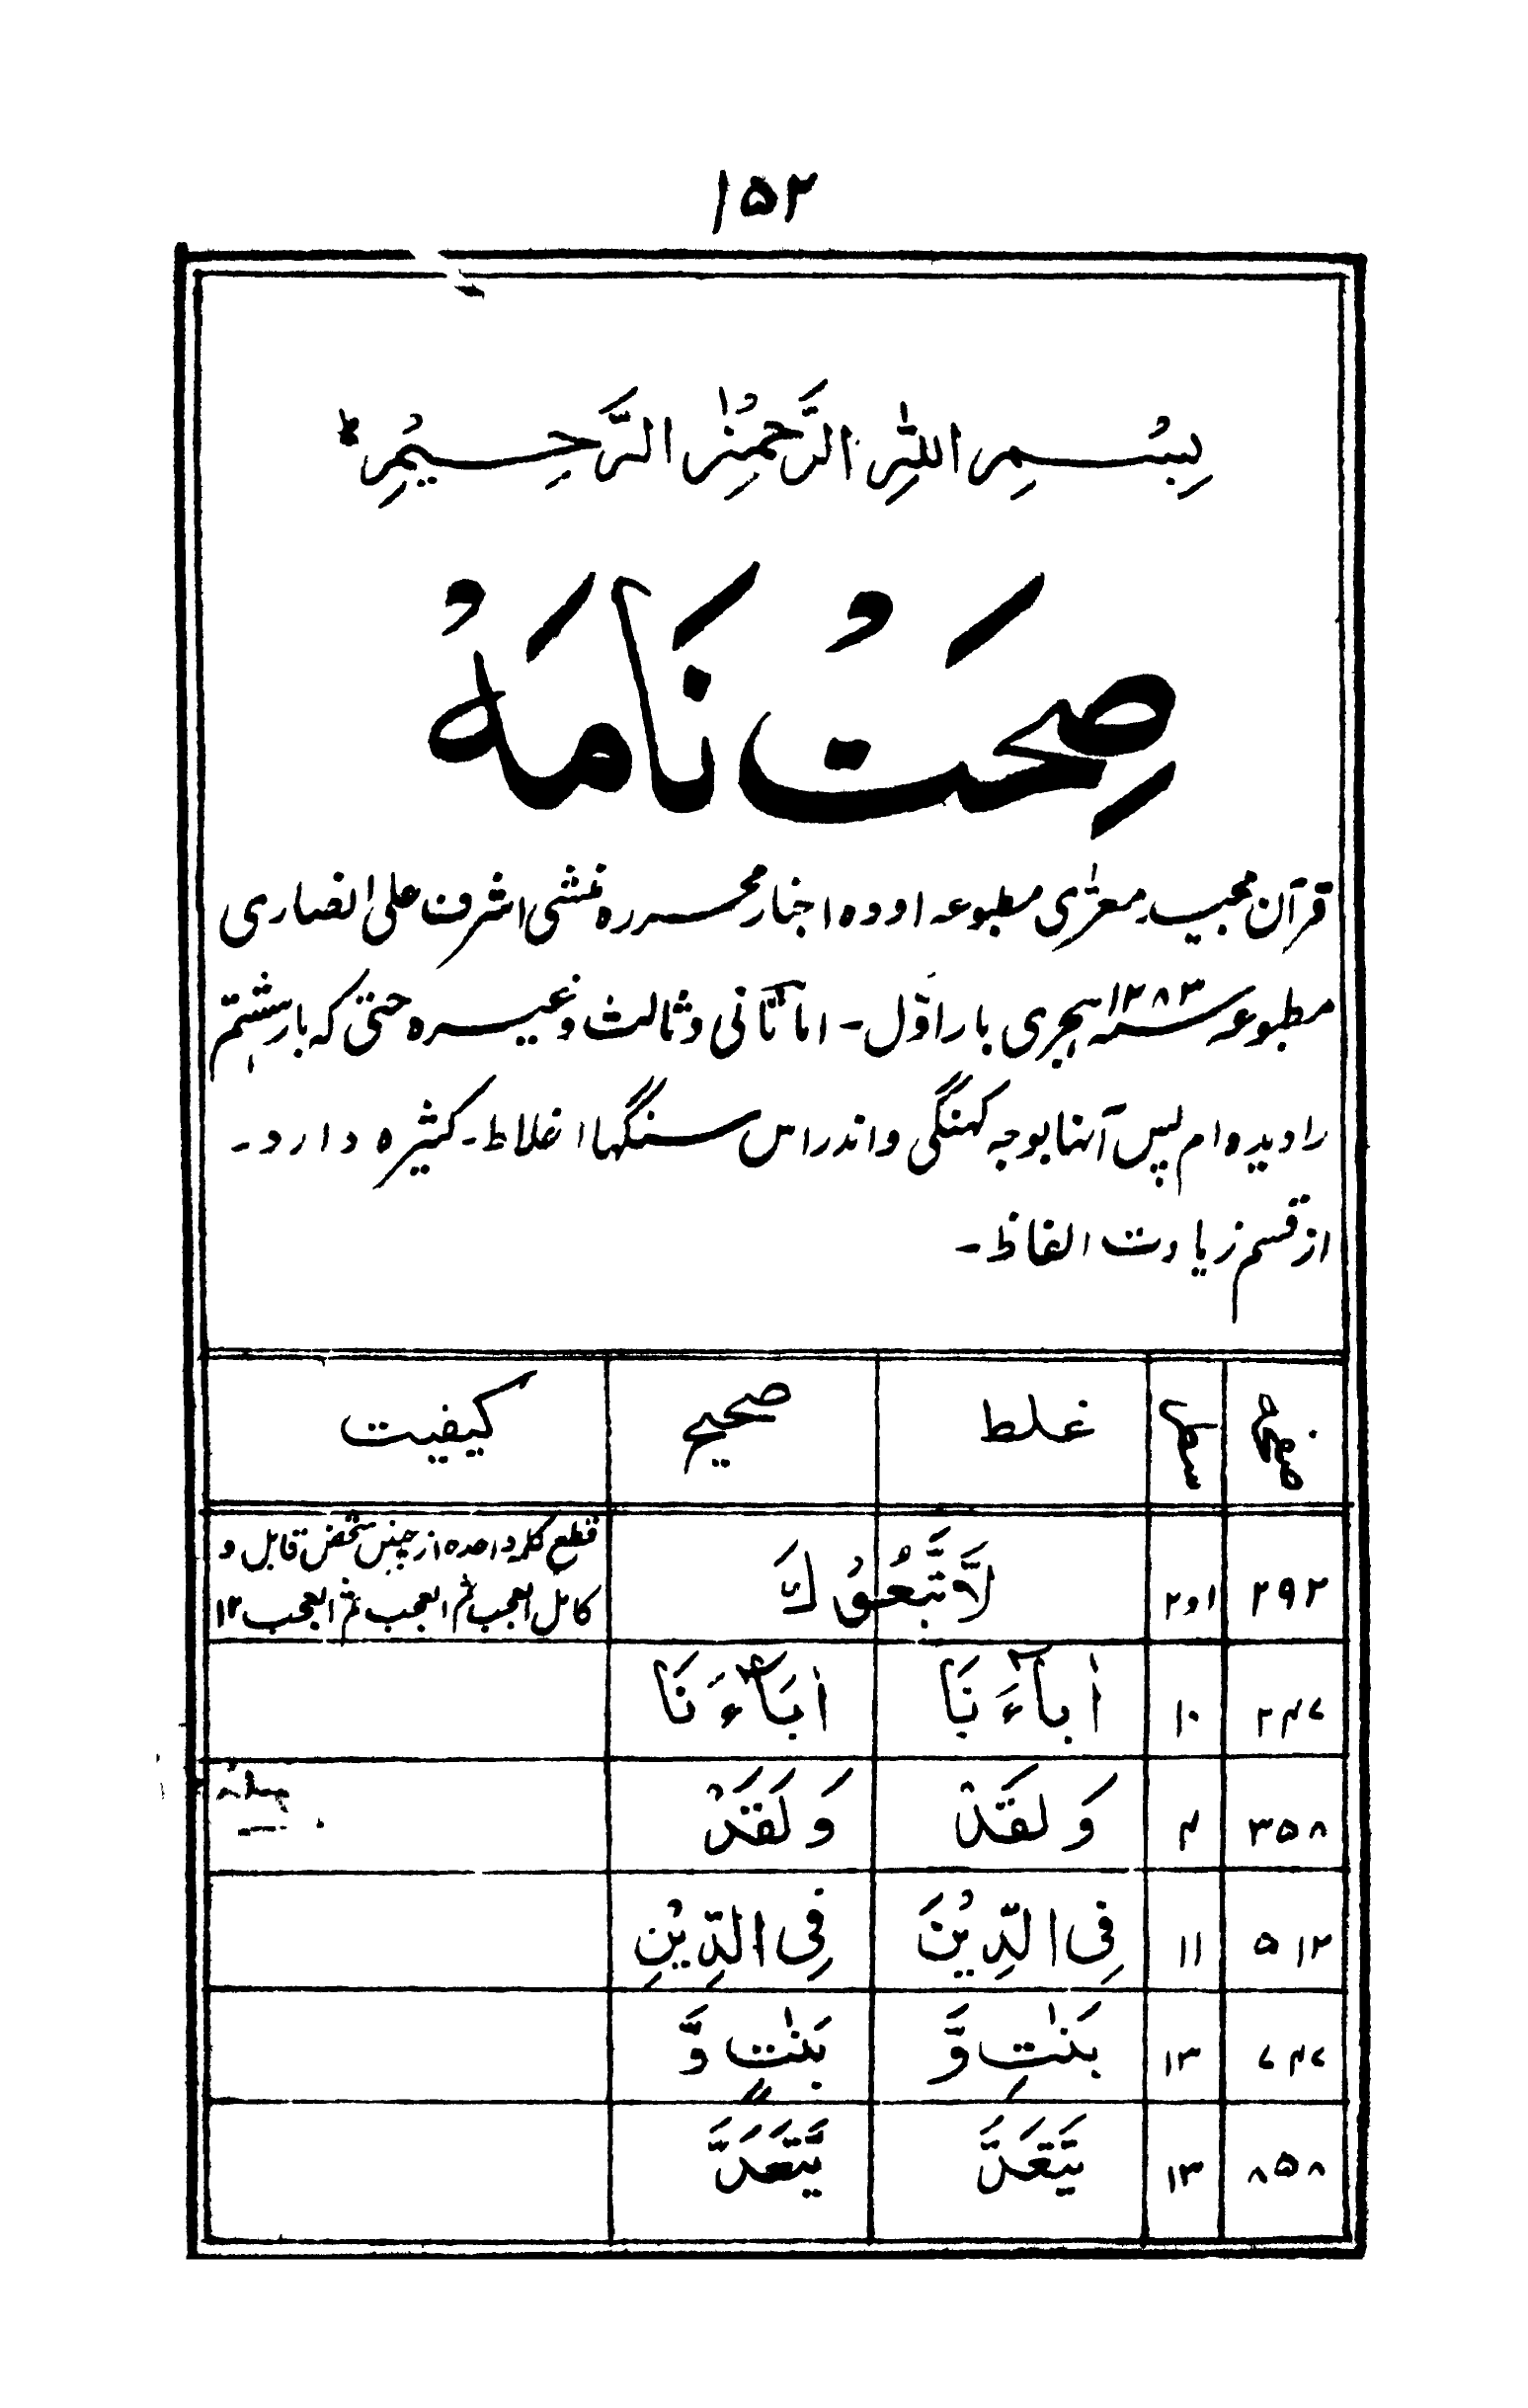 ۱۵۲
بِسْمِ اللّٰهِ الرَّحْمٰنِ الرَّحِيْمِ
صِحَتُ نَامَهُ
قرآن مجید معرّٰی مطبوعہ اودہ اخبار محررہ منشی اشرف علی انصاری
مطبوعہ سنہ ۱۲۸۳ ہجری بار اوّل۔ اما ثانی و ثالث وغیرہ حتی کہ بار ہشتم
را دیدہ ام پس آنہا بوجہ کہنگی و اندراس سنگہا اغلاط۔ کثیرہ دارد۔
از قسم زیادت الفاظ۔
صفحہ سطر غلط صحیح کیفیت
۲۹۲ ۱و۲ لَاَتَّبَعُوْكَ قطع کلمہ واحدہ از چنیں شخص قابل و
کامل العجب ثم العجب ثم العجب ۱۲
۲۴۷ ۱۰ اٰبآءَنَا اٰبَآءَنَا
۳۵۸ ۴ وَلقَدْ وَلَقَدْ
۵۱۲ ۱۱ فِی الدِّيْنَ فِی الدِّيْنِ
۷۴۷ ۱۳ بَنٰتِ وَّ بَنٰتٍ وَّ
۸۵۸ ۱۳ يَّتَعَدَّ يَّتَعَدَّ